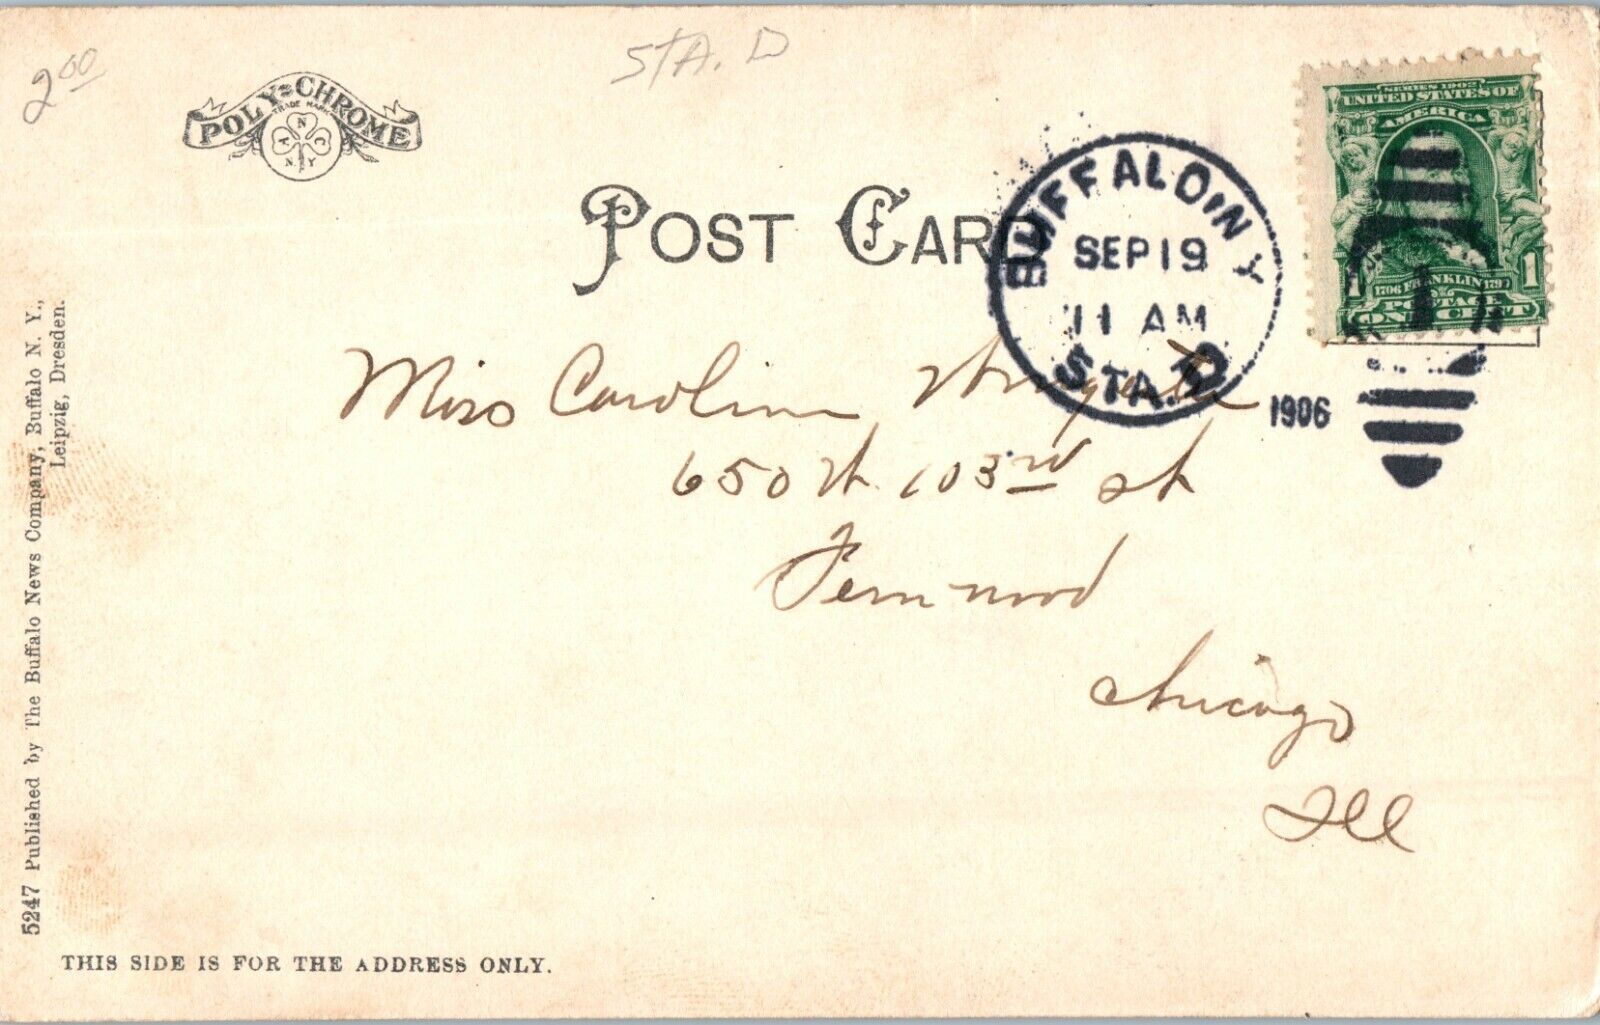 2⁰⁰
STA. D
POLY-CHROME
TRADE MARK
A N C
N. Y
POST CARD
BUFFALO, N.Y.
SEP 19
11 AM
STA. D
1906
SERIES 1902
UNITED STATES OF
AMERICA
1706 FRANKLIN 1790
1 1
POSTAGE
ONE CENT
Miss Caroline
650 W. 103rd st
Fernwood
Chicago
Ill
5247 Published by The Buffalo News Company, Buffalo N. Y.,
Leipzig, Dresden.
THIS SIDE IS FOR THE ADDRESS ONLY.